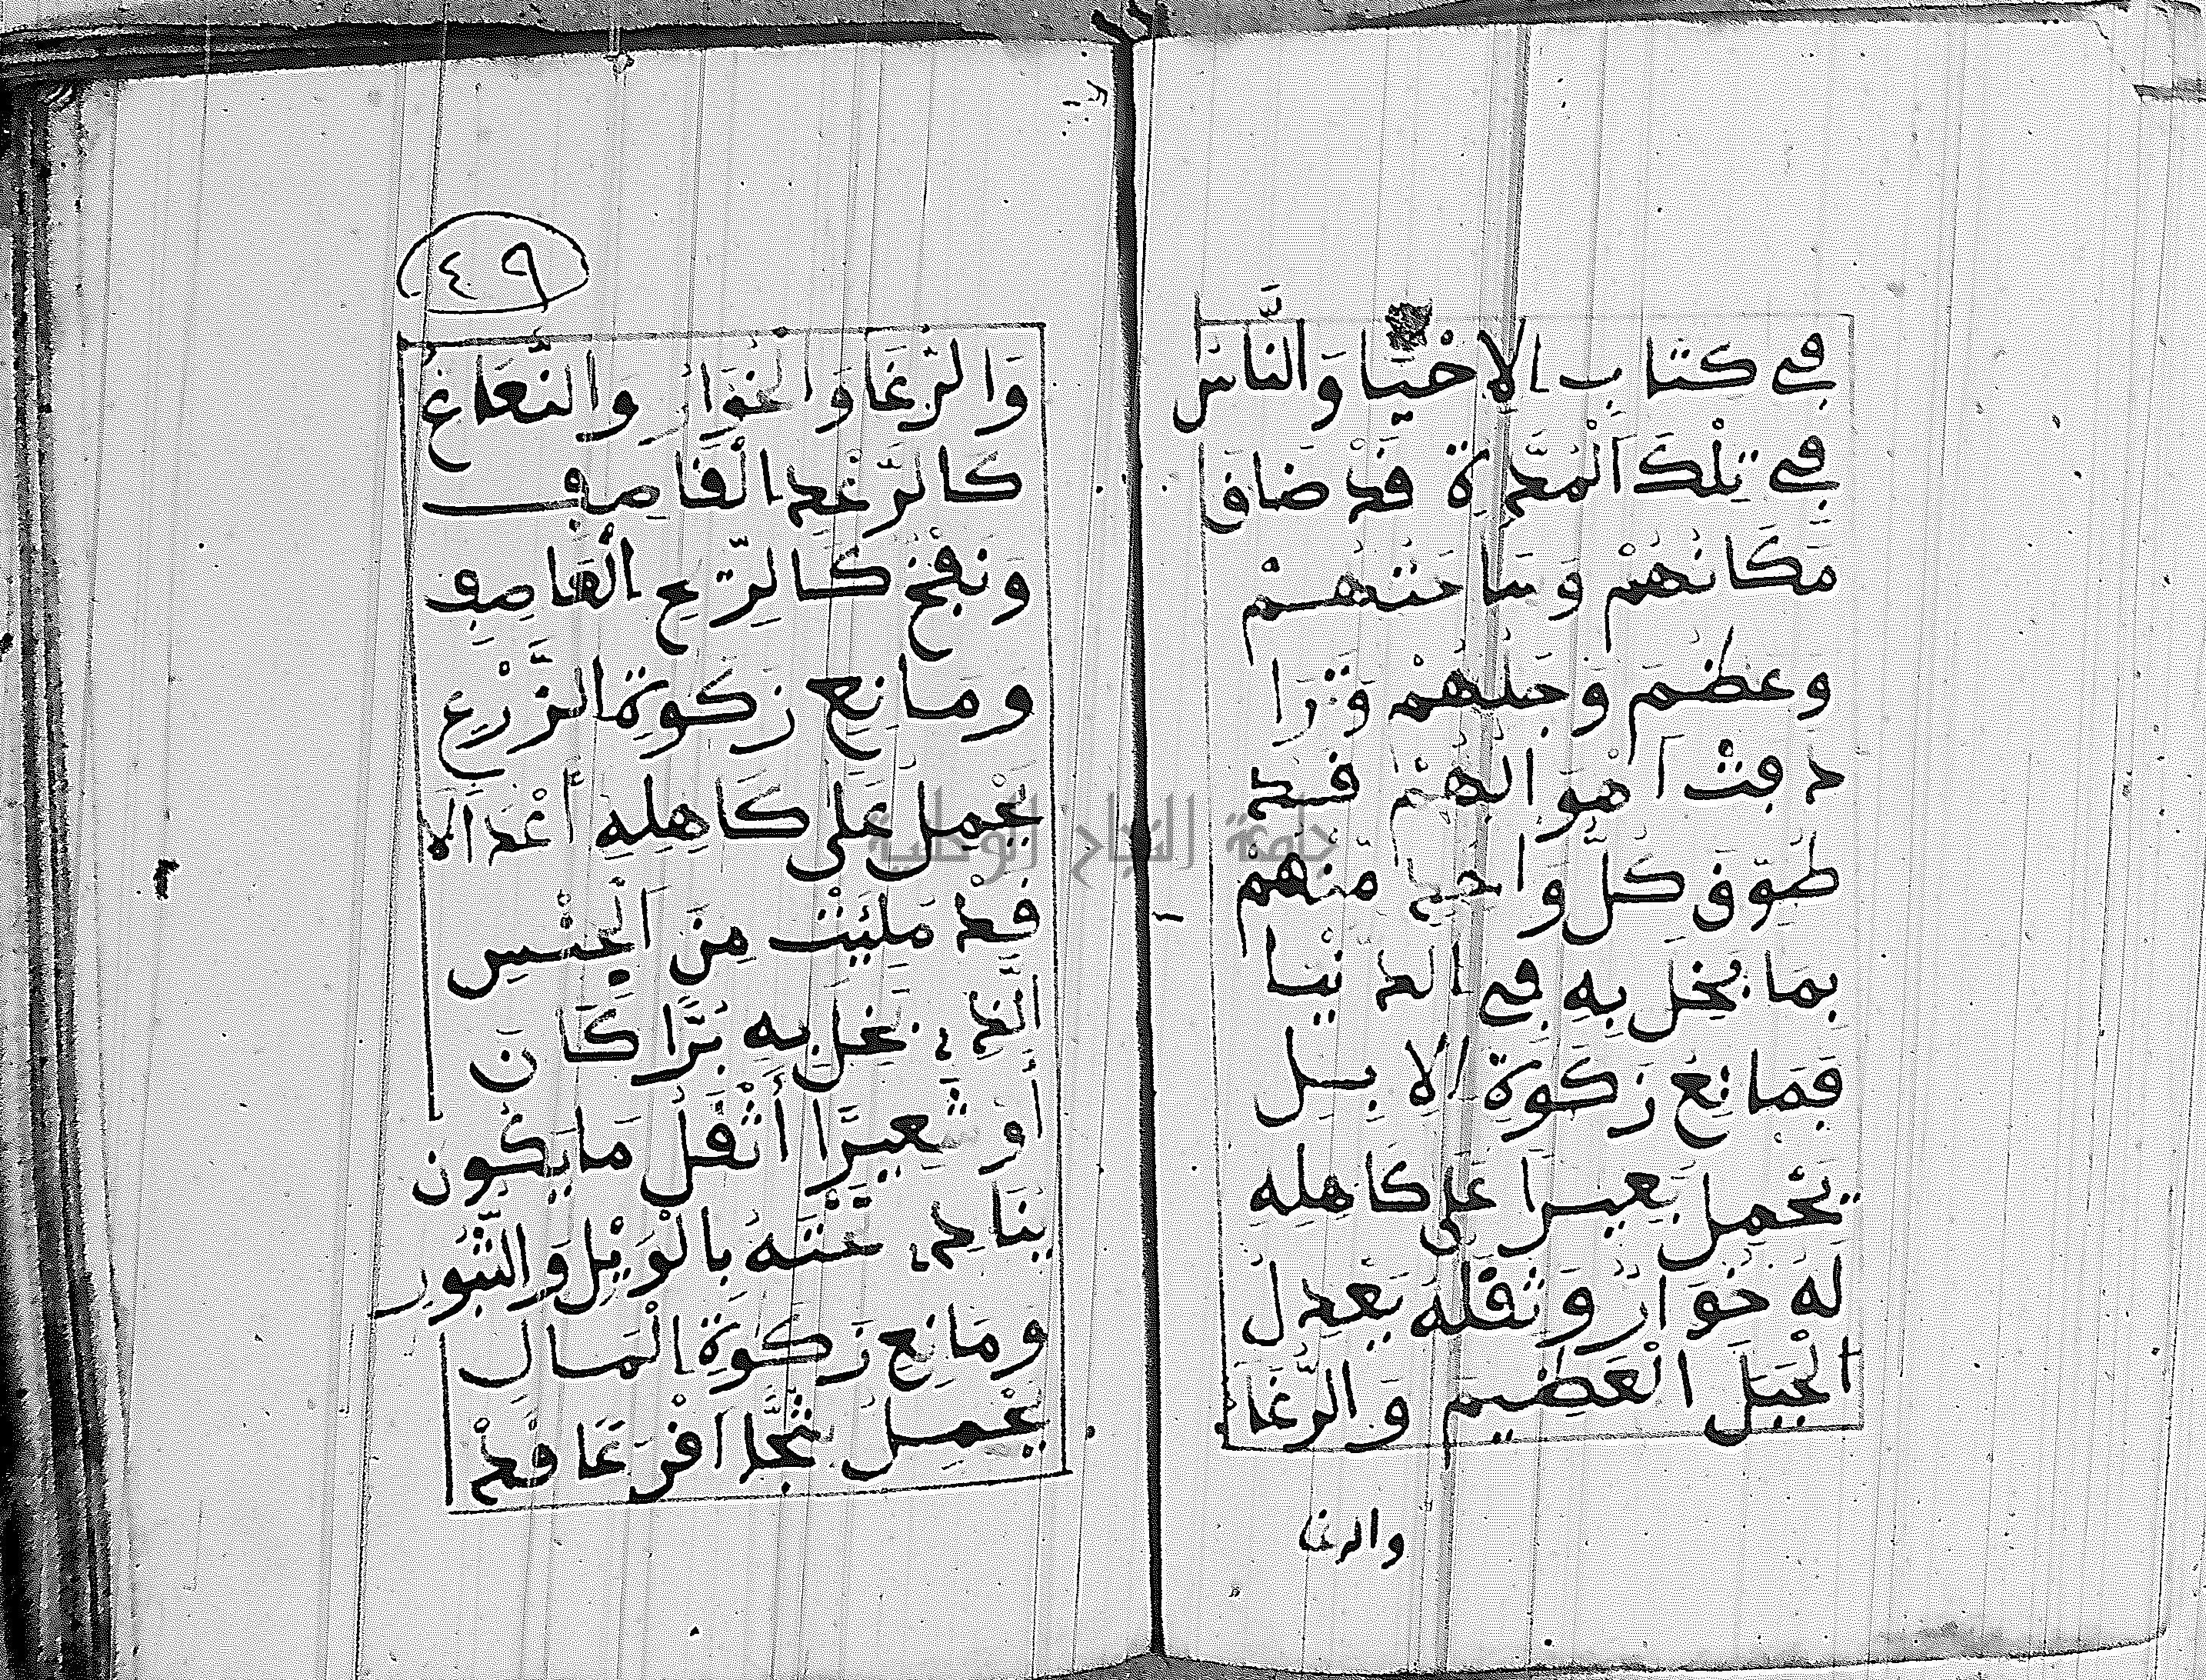 في كتاب الاحْيَا وَالنَّاس
في تِلْكَ الْمُدَّةِ قَدْ ضَاقَ
مَكَانُهُمْ وَسَاحَتُهُمْ
وعظمَ وَجلُهُمْ وَتَرَا
دفتْ أهْوَالُهُمْ قد
طوّقَ كلُّ وَاحدٍ مّنهُمْ
بمَا بخلَ بِهِ في الدنْيَا
فمَانِعُ زَكَوةِ الابِلِ
يَحْمِلُ بَعِيرًا عَلى كَاهِلِهِ
لَهُ خُوَارٌ وَثقلهُ بَعْدِلُ
الْجَبَلَ الْعَظِيمَ وَالرُّغَا
والرغا
٤٩
وَالرُّغَا وَالْخُوَارُ وَالنُّعَاعُ
كَالرَّعْدِ الْقَاصِفِ
وَنَفْخ كَالرِّيحِ الْقَاصِفِ
وَمَانِعُ زَكَوةِ الزَّرْعِ
يَحْمِلُ عَلَى كَاهِلِهِ أَعْدَالا
قَدْ مُلِئَتْ مِنَ الْجِنْسِ
الَّذِي بَخِلَ بِهِ بُرًّا كَانَ
أَوْ شَعِيرًا أَثْقَلُ مَا يَكُون
يُنَادِي تَحْتَهُ بِالْوَيْلِ وَالثُّبُورِ
وَمَانِعُ زَكَوةِ الْمَالِ
يَحْمِلُ شُجَاعًا أَقْرَعَا قَدْ
جامعة النجاح الوطنية